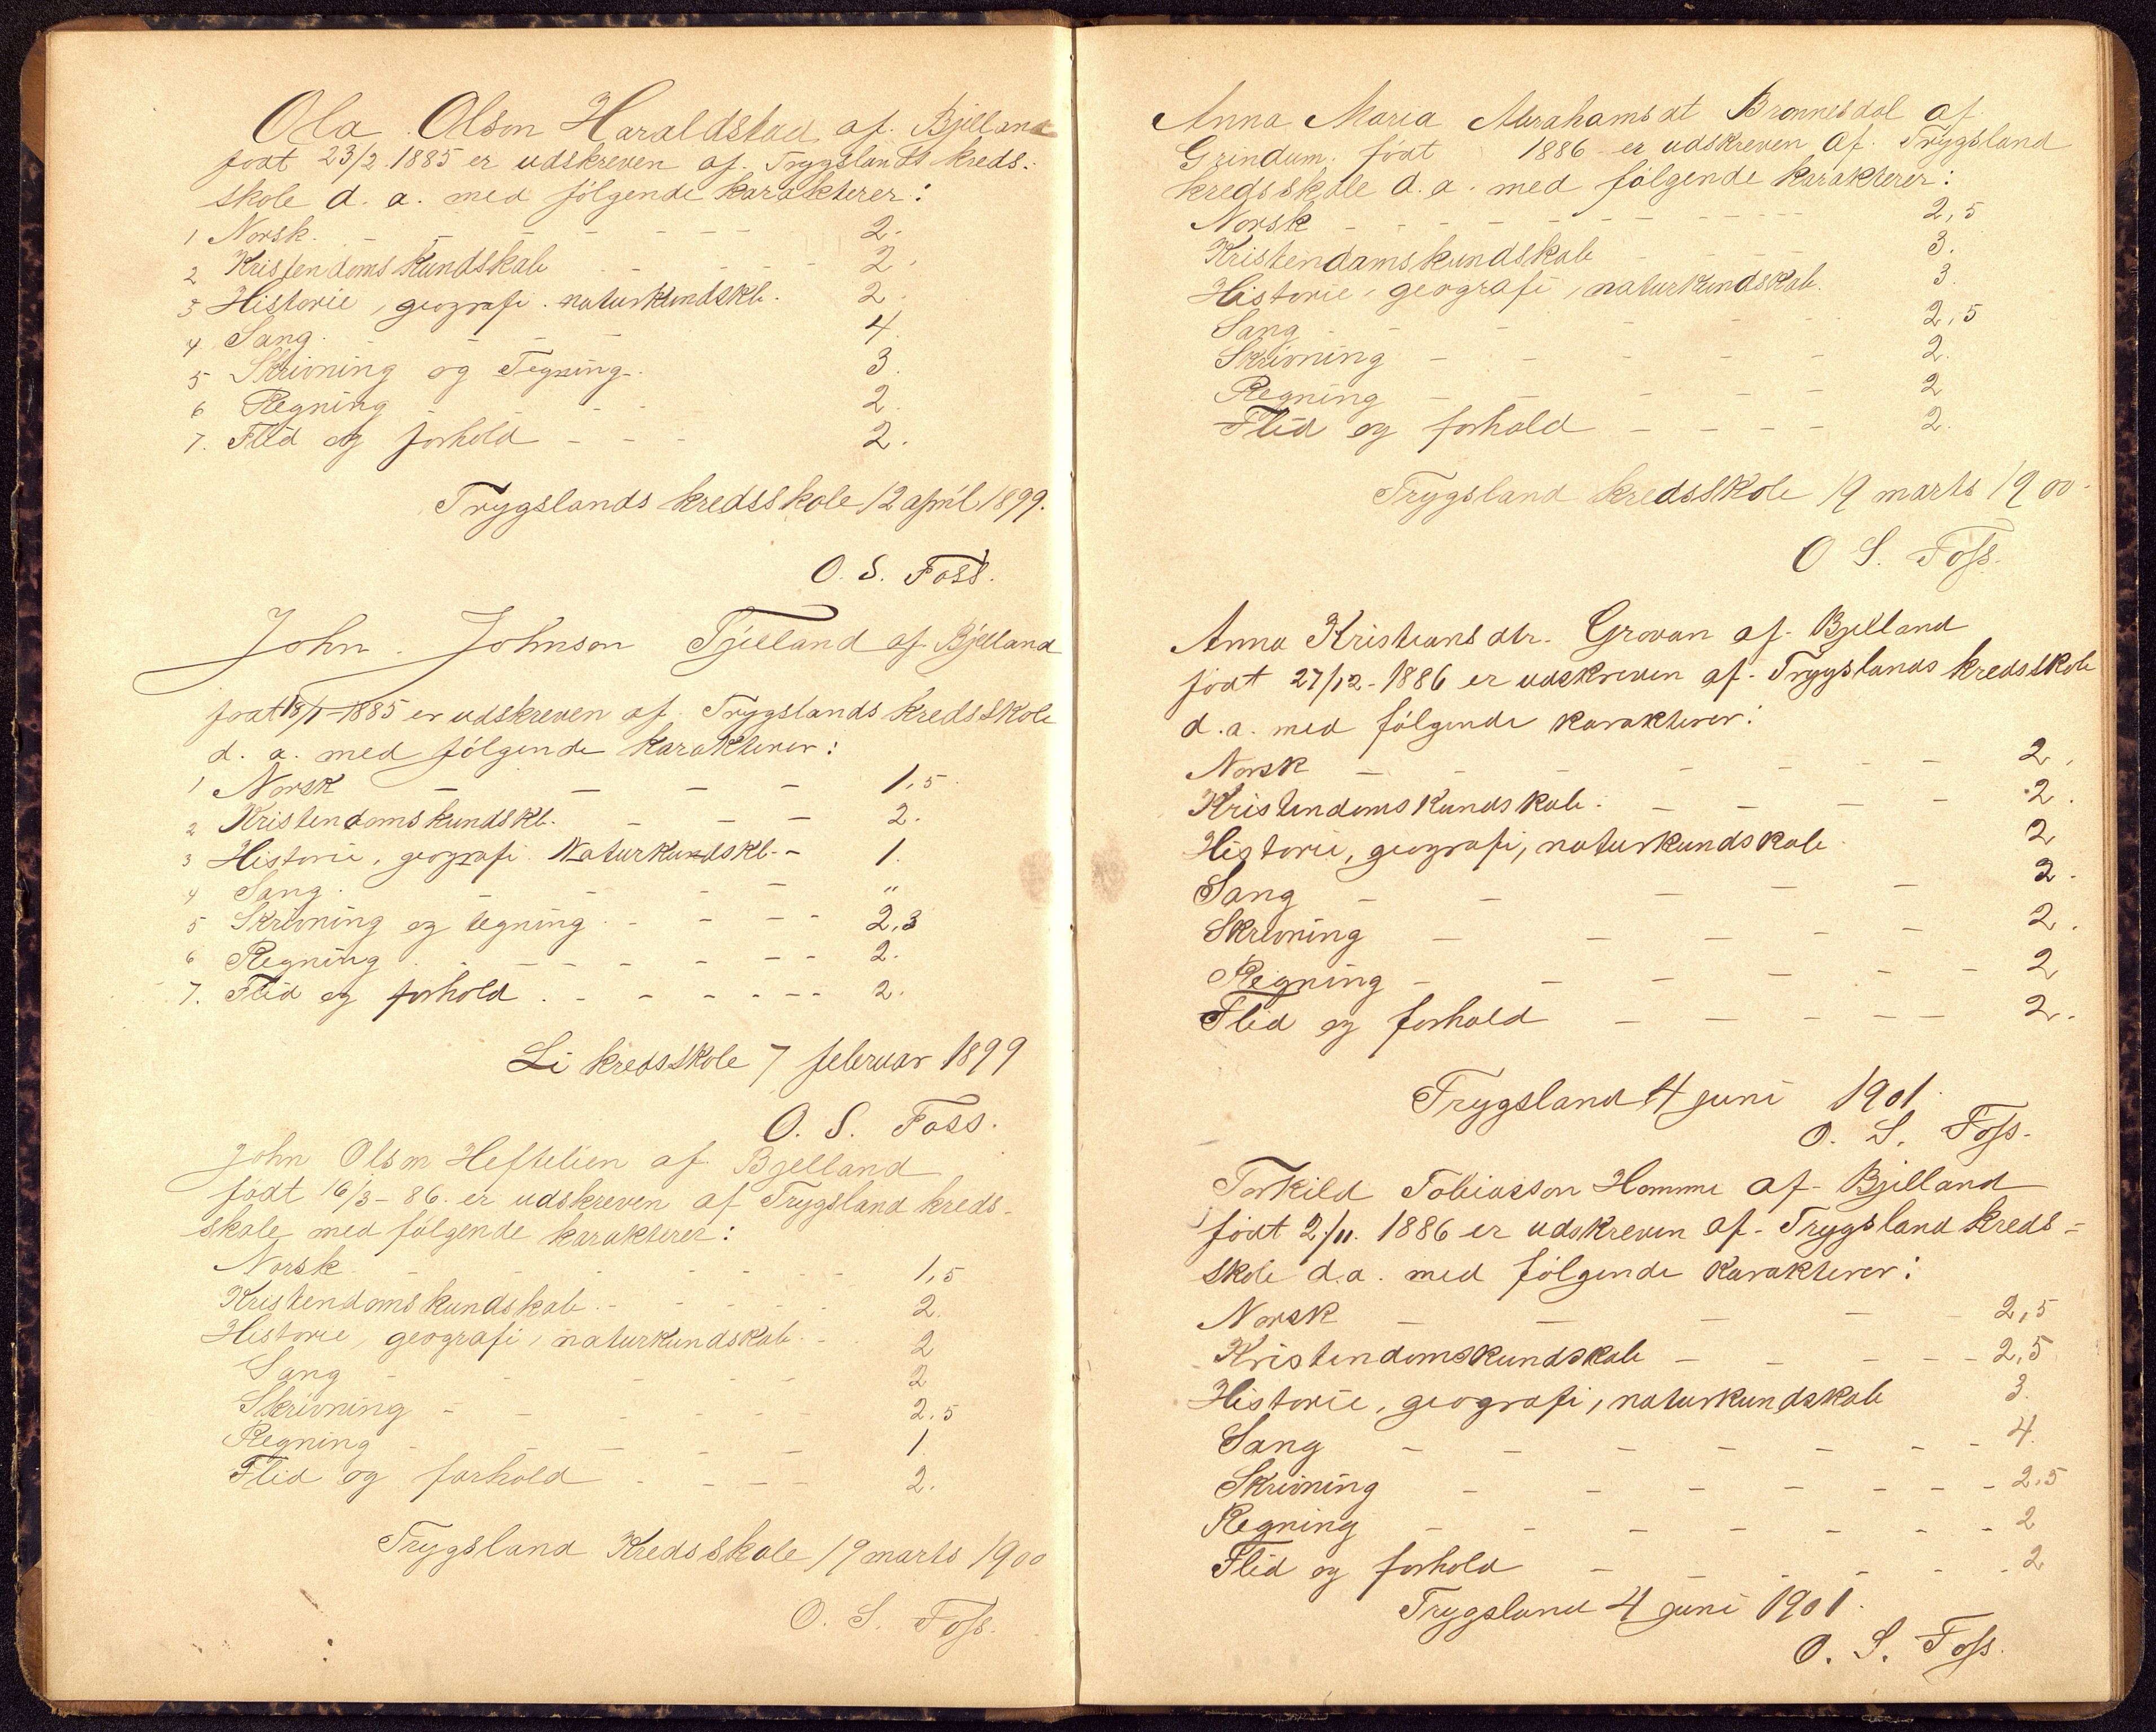 Ola Olson Haraldstad af Bjelland
født 23/2 1885 er udskreven af Trygslands kreds-
skole d. a. med følgende karakterer:
1 Norsk. - - - - - - - 2.
2 Kristendomskundskab - - - - 2.
3 Historie, geografi. naturkundskb. 2.
4 Sang. - - - 4.
5 Skrivning og Tegning. 3.
6 Regning - - - - 2.
7. Flid og forhold - - - 2.
Trygslands kredsskole 12 april 1899.
O. S. Foss.
John Johnson Tjelland af Bjelland
født 18/1-1885 er udskreven af Trygslands kredsskole
d. a. med følgende karakterer:
1 Norsk - - - - 1,5
2 Kristendomskundskb. - - - 2.
3 Historie, geografi. Naturkundskb. - 1.
4 Sang. - - - - "
5 Skrivning og tegning. - - - - 2,3
6 Regning - - - - - - - 2.
7. Flid og forhold. - - - - - - 2.
Li kredsskole 7 februar 1899
O. S. Foss.
John Olson Heftelien af Bjelland
født 16/3-86. er udskreven af Trygsland kreds-
skole med følgende karakterer:
Norsk - - - - - - 1,5
Kristendomskundskab. - - - - - 2.
Historie, geografi, naturkundskab. - 2
Sang - - - - - 2
Skrivning - - - - - 2.5
Regning - - - - - 1.
Flid og forhold - - - - 2.
Trygsland Kredsskole 19 marts 1900
O. S. Foss.
Anna Maria Abrahamsdt Bronnesdal af
Grindum. født 1886 er udskreven af Trygsland
kredsskole d. a. med følgende karakterer:
Norsk - - - - - - - - - 2,5
Kristendomskundskab - - - - 3.
Historie, geografi, naturkundskab. 3.
Sang - - - - - 2,5
Skrivning - - - - - 2.
Regning - - - - - 2
Flid og forhold - - - - 2.
Trygsland kredsskole 19 marts 1900.
O S. Foss.
Anna Kristiansdtr. Grovan af Bjelland
født 27/12-1886 er udskreven af Trygslands kredsskole
d. a. med følgende karakterer:
Norsk - - - - - - - 2.
Kristendomskundskab. - - - - 2.
Historie, geografi, naturkundskab. 2
Sang - - - - - 2.
Skrivning - - - - - 2.
Regning - - - - - - 2
Flid og forhold - - - - - 2.
Trygsland 4 juni 1901.
O. S. Foss.
Torkild Tobiasson Homme af Bjelland
født 2/11. 1886 er udskreven af Trygsland kreds-
skole d.a. med følgende karakterer:
Norsk - - - - 2,5
Kristendomskundskab - - - - - 2,5
Historie, geografi, naturkundskab 3.
Sang - - - - - - - 4.
Skrivning - - - - - - - 2.5
Regning - - - - - - - 2
Flid og forhold - - - - - - 2
Trygsland 4 juni 1901.
O. S. Foss.